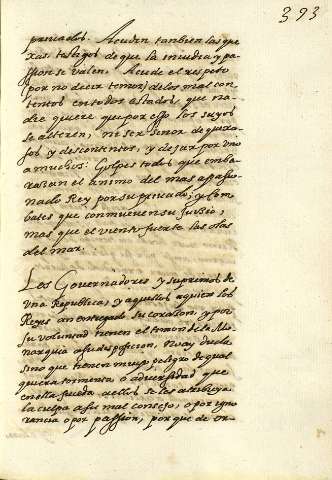 393
priuados. Acuden tanbien las que
xas, testigos de que la inuidia y pa
ssion se valen. Acude el respeto
por no decir temor, de los mal con
tentos en todos estados, que na
die quiere que por esso los suyos
se entien, ni ser señor de quexo
sos y descontentos, y dejar por uno
a muchos: Golpes todos que emba
raçaran el animo del mas apasio
nado Rey por su priuado; y com
bates que conmueuen su juyzio,
mas que el viento fuerte las olas
del mar.
Los Gouernadores y supremos de
una Republica, y aquellos a quien los
Reyes an entregado su coraçon, y por
su voluntad tienen el temon de la Mo
narquia a su disposicion, no ay duda
sino que tienen muy peligro de qual
quiera tormenta o aduersidad que
en ella suceda a ellos se les atribuya
la culpa a su mal consejo, o por igno
rancia o por passion, porque de or-